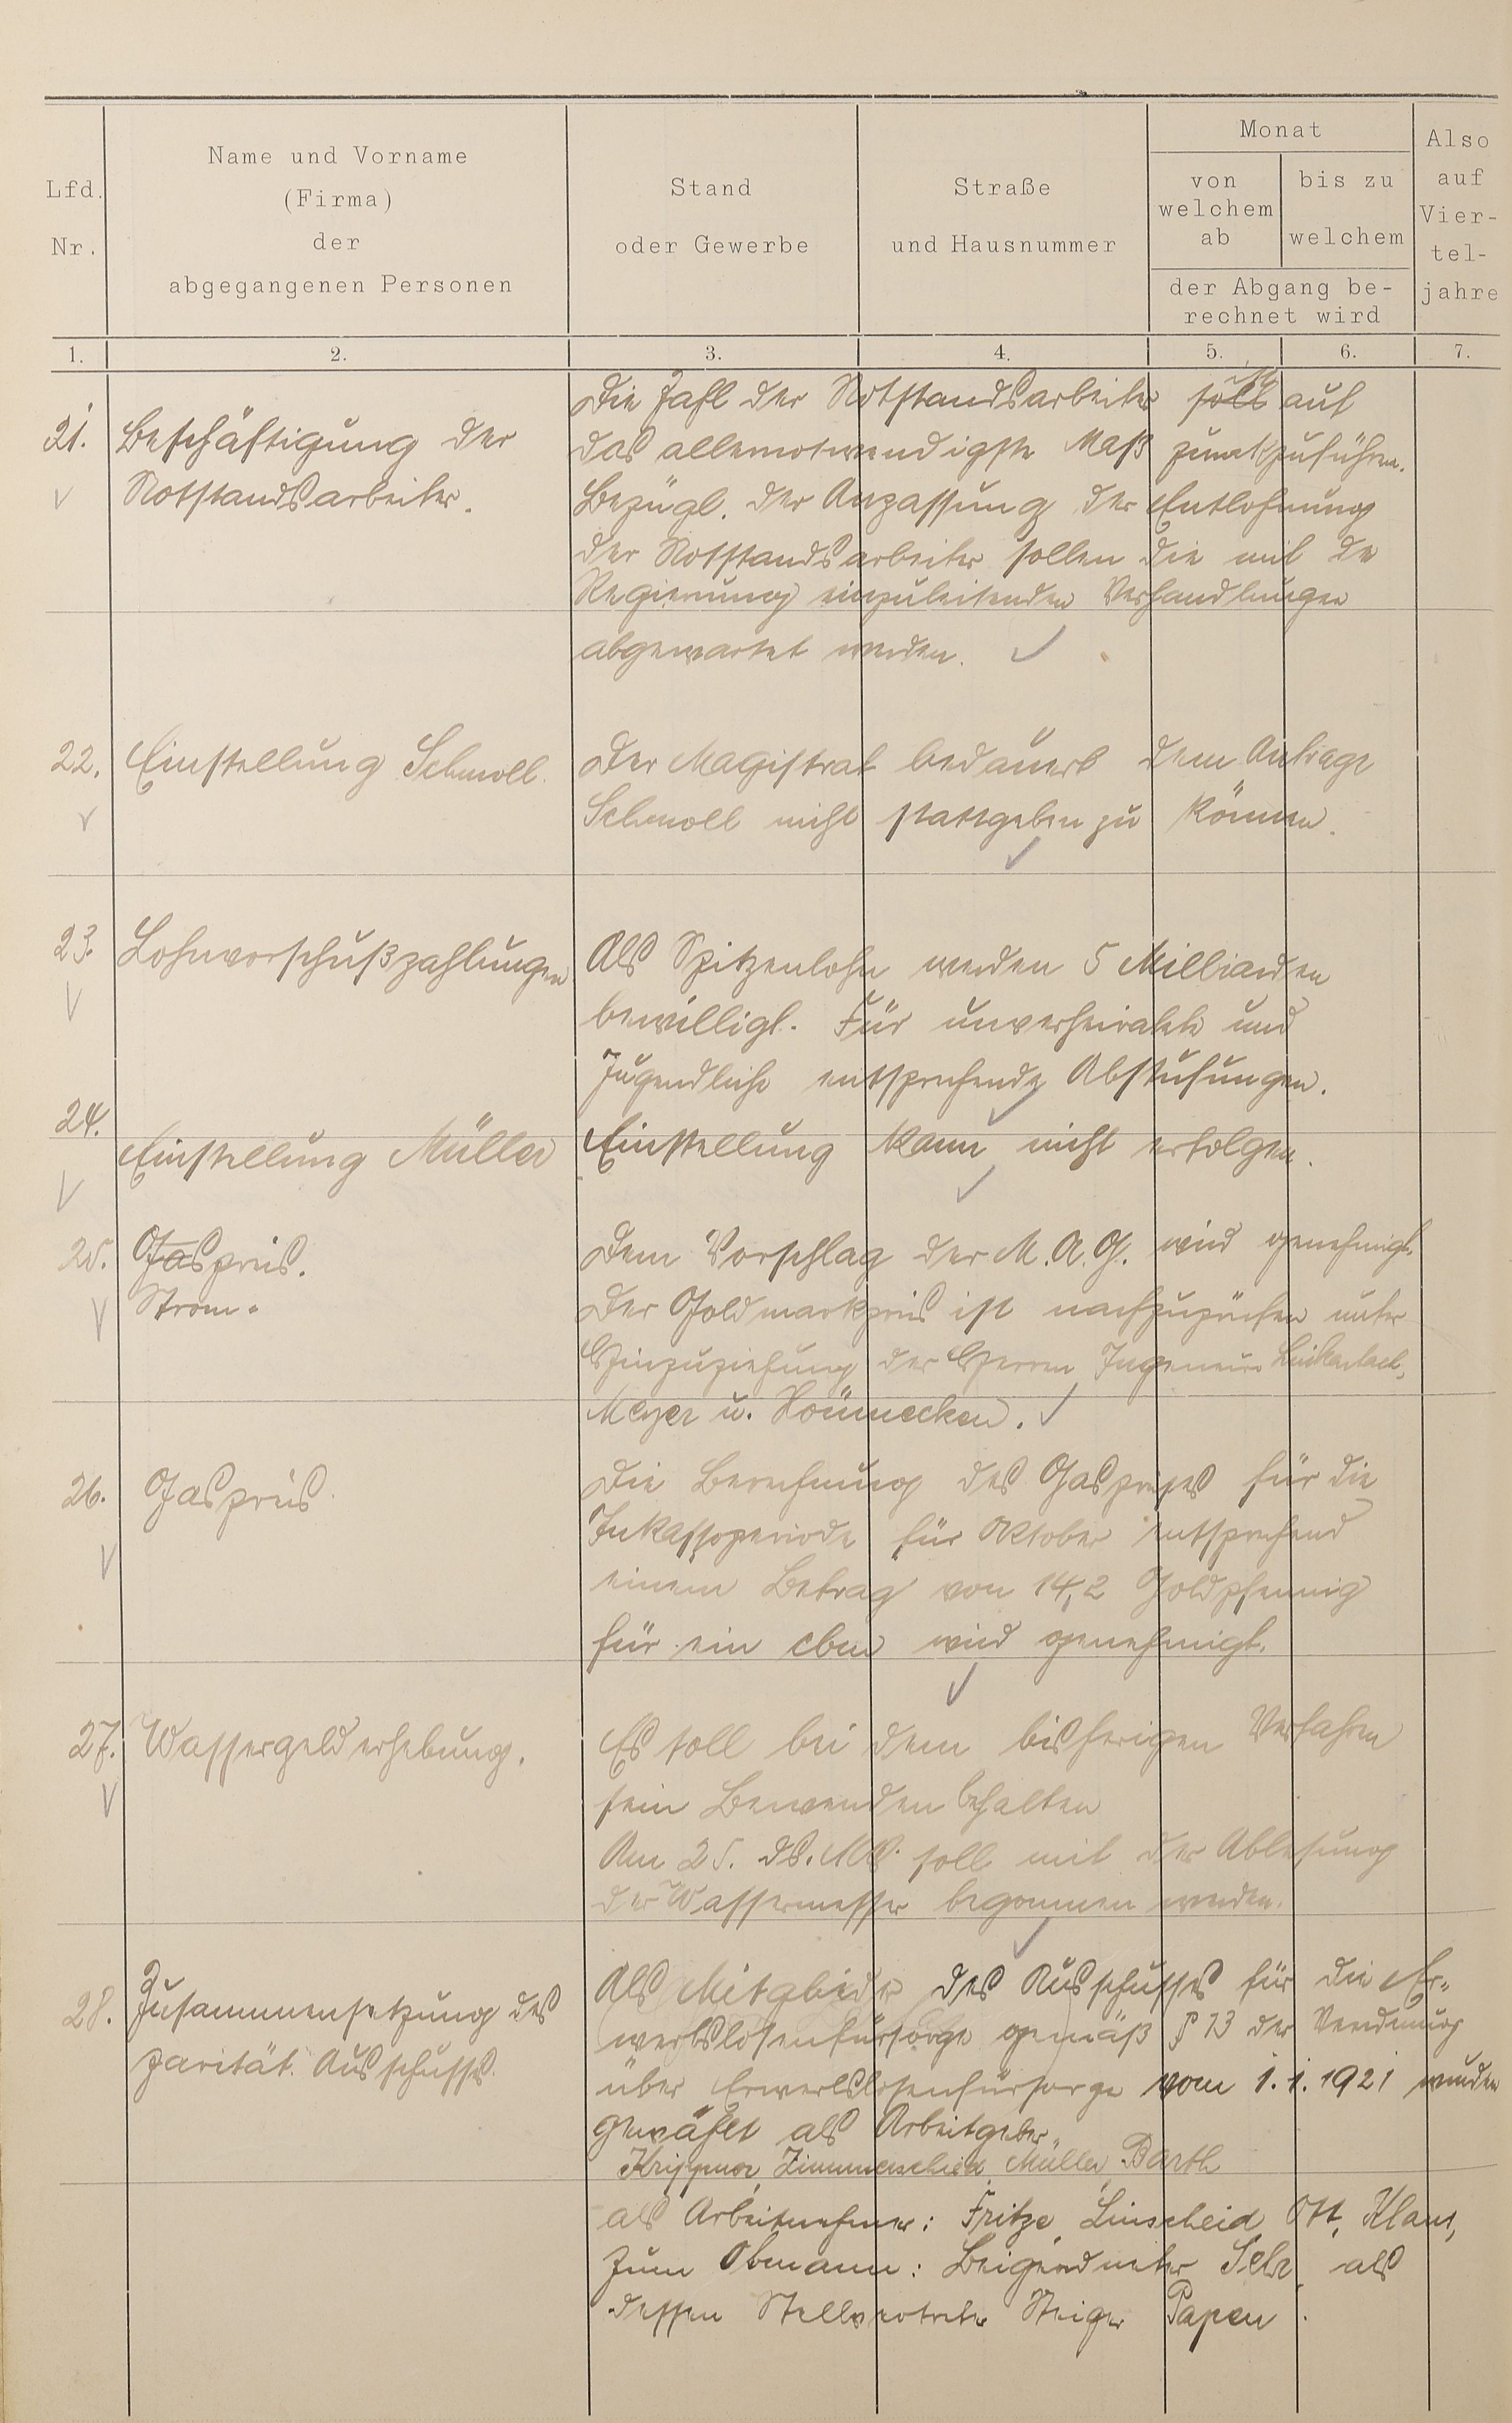 Lfd. Nr.
Name und Vorname
(Firma)
der
abgegangenen Personen
Stand
oder Gewerbe
Straße
und Hausnummer
Monat
von
welchem
ab
bis zu
welchem
der Abgang be-
rechnet wird
Also
auf
Vier-
tel-
jahre
1. 2. 3. 4. 5. 6. 7.
21. Beschäftigung der
Notstandsarbeiter.
Die Zahl der Notstandsarbeiter soll auf
das allernotwendigste Maß zurückzuführen.
Bezügl. der Anpassung der Entlohnung
der Notstandsarbeiter sollen die mit der
Regierung einzuleitenden Verhandlungen
abgewartet werden.
22. Einstellung Schmoll.
Der Magistrat bedauert dem Antrage
Schmoll nicht stattgeben zu können.
23. Lohnvorschußzahlungen
Als Spitzenlohn werden 5 Milliarden
bewilligt. Für unverheiratete und
Jugendliche entsprechende Abstufungen.
24. Einstellung Müller
Einstellung kann nicht erfolgen.
25. Gaspreis.
Strom.
Dem Vorschlag der M.A.G. wird genehmigt.
Der Goldmarkpreis ist nachzuprüfen unter
Hinzuziehung der Herren Ingenieure
Meyer u. Hönnecken.
26. Gaspreis.
Die Berechnung des Gaspreises für die
Inkassoperiode für Oktober entsprechend
einem Betrag von 14,2 Goldpfennig
für ein cbm wird genehmigt.
27. Wassergelderhebung.
Es soll bei dem bisherigen Verfahren
sein Bewenden behalten
Am 25. ds. Mts. soll mit der Ablesung
der Wassermesser begonnen werden.
28. Zusammensetzung des
parität. Ausschusses.
Als Mitglieder des Ausschusses für die Er-
werbslosenfürsorge gemäß § 13 der Verordnung
über Erwerbslosenfürsorge vom 1.1.1921 wurden
gewählt als Arbeitgeber:
Zimmerschied, Müller, Barth
als Arbeitnehmer: Fritze, Linscheid, Ott, Klaus,
zum Obmann: Beigeordneter als
dessen Stellvertreter Steiger Papen.